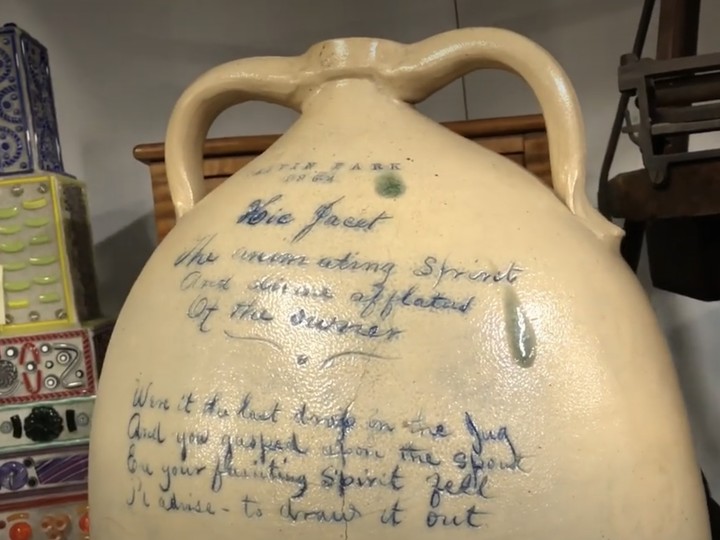 PARK
Hic Jacet
The animating Spririt
And divine afflatus
Of the owner
Wer it the last drop in the Jug
And you gasped upon the spout
Ere your fainting Spirit fell
I'l advise - to draw it out